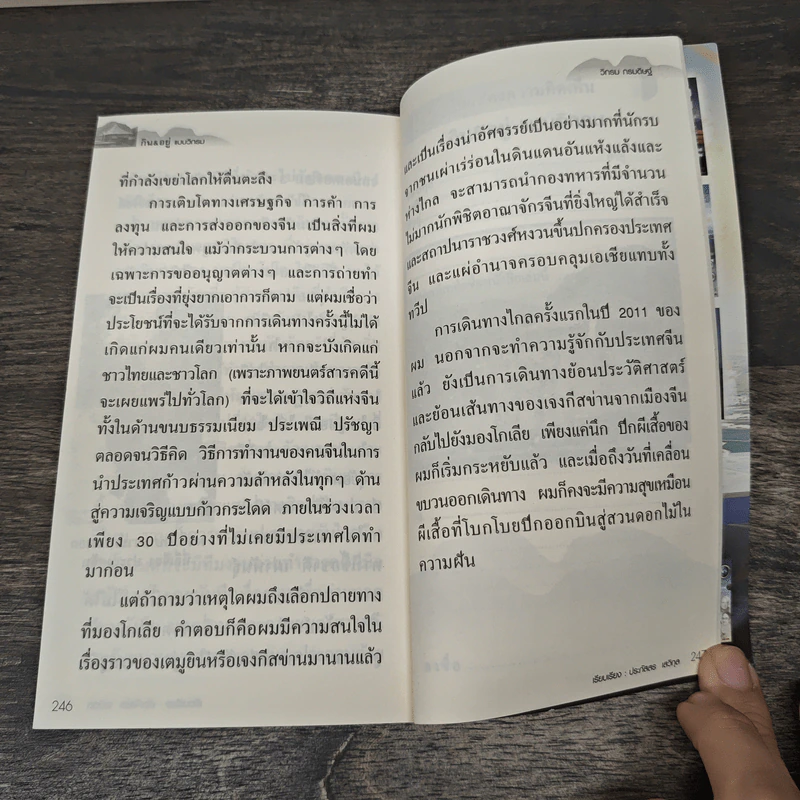 กิน&อยู่ แบบวิกรม
ที่กำลังเขย่าโลกให้ตื่นตะลึง
การเติบโตทางเศรษฐกิจ การค้า การ
ลงทุน และการส่งออกของจีน เป็นสิ่งที่ผม
ให้ความสนใจ แม้ว่ากระบวนการต่างๆ โดย
เฉพาะการขออนุญาตต่างๆ และการถ่ายทำ
จะเป็นเรื่องที่ยุ่งยากเอาการก็ตาม แต่ผมเชื่อว่า
ประโยชน์ที่จะได้รับจากการเดินทางครั้งนี้ไม่ได้
เกิดแก่ผมคนเดียวเท่านั้น หากจะบังเกิดแก่
ชาวไทยและชาวโลก (เพราะภาพยนตร์สารคดีนี้
จะเผยแพร่ไปทั่วโลก) ที่จะได้เข้าใจวิถีแห่งจีน
ทั้งในด้านขนบธรรมเนียม ประเพณี ปรัชญา
ตลอดจนวิธีคิด วิธีการทำงานของคนจีนในการ
นำประเทศก้าวผ่านความล้าหลังในทุกๆ ด้าน
สู่ความเจริญแบบก้าวกระโดด ภายในช่วงเวลา
เพียง 30 ปีอย่างที่ไม่เคยมีประเทศใดทำ
มาก่อน
แต่ถ้าถามว่าเหตุใดผมถึงเลือกปลายทาง
ที่มองโกเลีย คำตอบก็คือผมมีความสนใจใน
เรื่องราวของเตมูยินหรือเจงกีสข่านมานานแล้ว
246
วิกรม กรมดิษฐ์
และเป็นเรื่องน่าอัศจรรย์เป็นอย่างมากที่นักรบ
จากชนเผ่าเร่ร่อนในดินแดนอันแห้งแล้งและ
ห่างไกล จะสามารถนำกองทหารที่มีจำนวน
ไม่มากนักพิชิตอาณาจักรจีนที่ยิ่งใหญ่ได้สำเร็จ
และสถาปนาราชวงศ์หงวนขึ้นปกครองประเทศ
จีน และแผ่อำนาจครอบคลุมเอเชียแทบทั้ง
ทวีป
การเดินทางไกลครั้งแรกในปี 2011 ของ
ผม นอกจากจะทำความรู้จักกับประเทศจีน
แล้ว ยังเป็นการเดินทางย้อนประวัติศาสตร์
และย้อนเส้นทางของเจงกีสข่านจากเมืองจีน
กลับไปยังมองโกเลีย เพียงแค่นึก ปีกผีเสื้อของ
ผมก็เริ่มกระหยับแล้ว และเมื่อถึงวันที่เคลื่อน
ขบวนออกเดินทาง ผมก็คงจะมีความสุขเหมือน
ผีเสื้อที่โบกโบยปีกออกบินสู่สวนดอกไม้ใน
ความฝัน
เรียบเรียง : ประภัสสร เสวิกุล